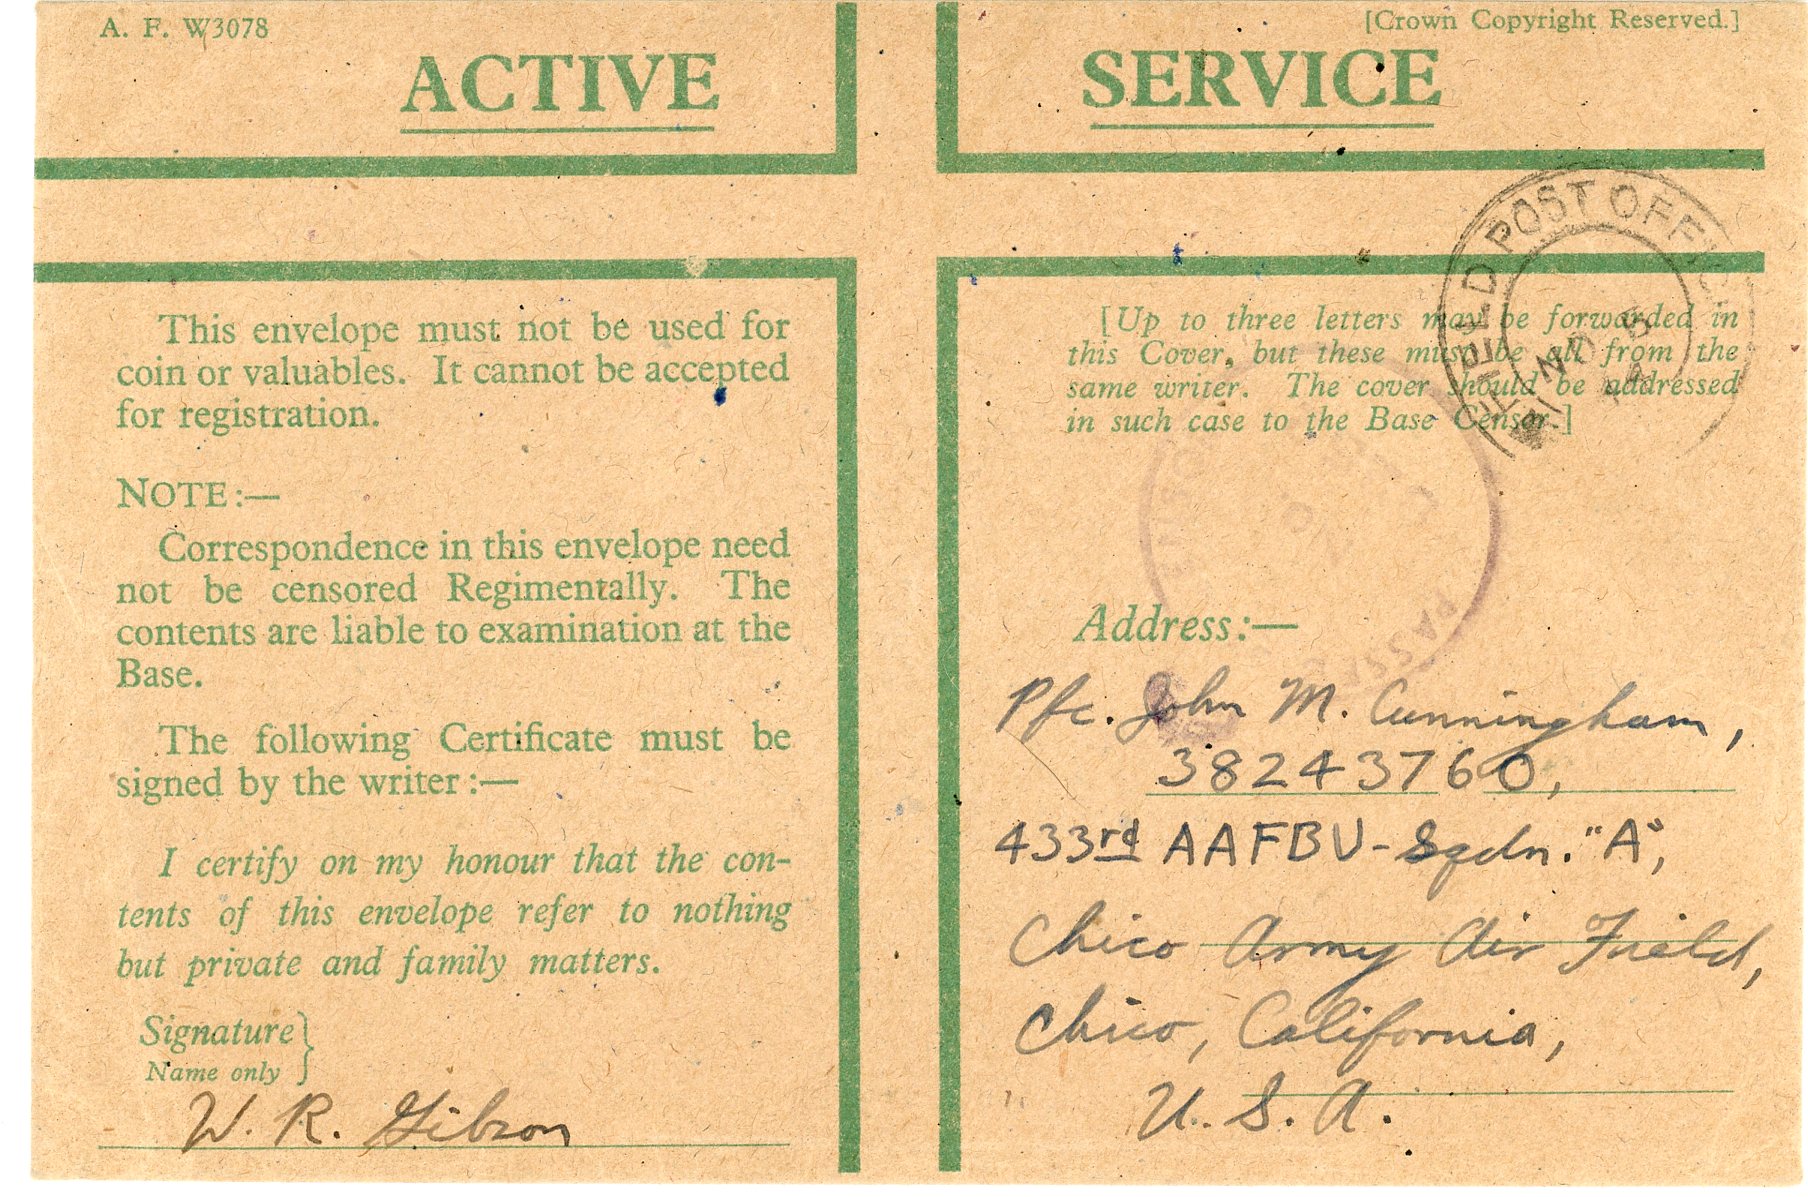 A. F. W3078
[Crown Copyright Reserved.]
ACTIVE SERVICE
This envelope must not be used for
coin or valuables. It cannot be accepted
for registration.
NOTE:—
Correspondence in this envelope need
not be censored Regimentally. The
contents are liable to examination at the
Base.
The following Certificate must be
signed by the writer:—
I certify on my honour that the con-
tents of this envelope refer to nothing
but private and family matters.
Signature }
Name only
W. R. Gibson
FIELD POST OFFICE
[Up to three letters may be forwarded in
this Cover, but these must be all from the
same writer. The cover should be addressed
in such case to the Base Censor.]
PASSED
Address:—
Pfc. John M. Cunningham,
38243760,
433rd AAFBU-Sqdn. "A",
Chico Army Air Field,
Chico, California,
U. S. A.